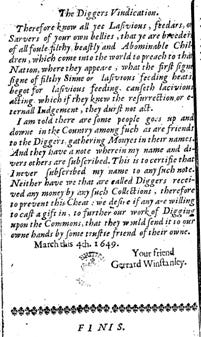 The Diggers Vindication.
Therefore know all ye Lasivious, feeders, or
Sarvers of your own bellies, that ye are breeders
of all foule filthy beastly and Abominable Chil-
dren, which come into the world to preach to that
Nation, where they appeare; what the first signe
signe of filthy Sinne or lasivious feeding heats,
begot for lasivious feeding. causeth lacivious
acting which if they knew the resurrection or e-
ternall Iudgement, they durst not act.
I am told there are some people goes up and
downe in the Country among such as are friends
to the Diggers gathering Monyes in their names.
And they have a note wherein my name and di-
vers others are subscribed. This is to certifie that
I never subscribed my name to any such note.
Neither have we that are called Diggers recei-
ved any money by any such Collections, therefore
to prevent this Cheat: we desire if any are willing
to cast a gift in, to further our work of Digging
upon the Commons, that they would send it to our
owne hands by some trustie friend of their owne.
March this 4th. 1649.
Your friend
Gerrard Winstanley.
FINIS.